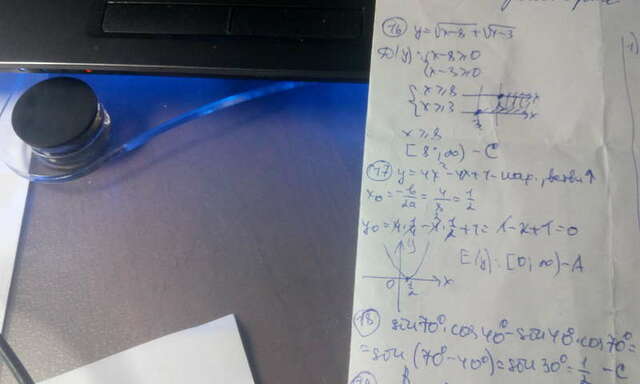 16 y=√x-8 + √x-3
D(y): {x-8≥0
{x-3≥0
{x≥8
{x≥3
x
3 x
x≥8
[8;∞) - C
17 y=4x²-4x+1 - пар., ветви ↑
x₀ = -b/2a = 4/8 = 1/2
y₀ = 4·1/4 - 4·1/2 + 1 = 1-2+1=0
y
0 1/2 x
E(y): [0,∞) - A
18 sin70°·cos40°-sin40°·cos70°=
=sin(70°-40°)=sin30°=1/2 - C